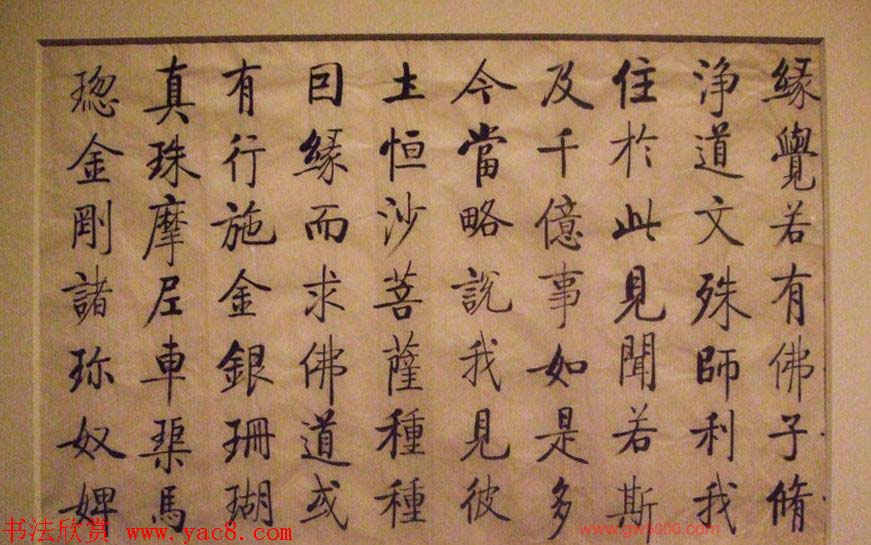 緣覺若有佛子脩
淨道文殊師利我
住於此見聞若斯
及千億事如是多
今當略說我見彼
土恒沙菩薩種種
因緣而求佛道或
有行施金銀珊瑚
真珠摩尼車璖馬
瑙金剛諸珎奴婢
书法欣赏 www.yac8.com
www.gw5000.com